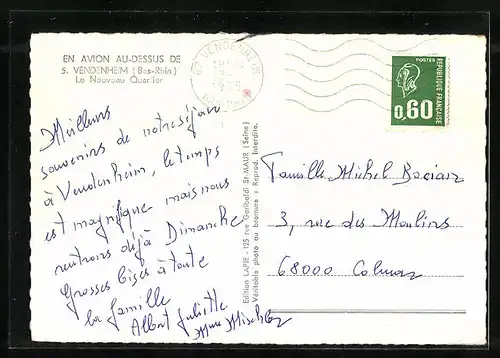 EN AVION AU-DESSUS DE
5. VENDENHEIM (Bas-Rhin)
Le Nouveau Quartier
VENDENHEIM
POSTES
REPUBLIQUE FRANÇAISE
0,60
Meilleurs
souvenirs de notre séjour
à Vendenheim, le temps
est magnifique mais nous
rentrons déjà Dimanche
Grosses bises à toute
la famille
Albert Juliette
Mme
Edition LAPIE - 125 rue Garibaldi St-MAUR (Seine)
Véritable photo au bromure - Reprod. Interdite.
Famille Michel
3, rue des Moulins
68000 Colmar